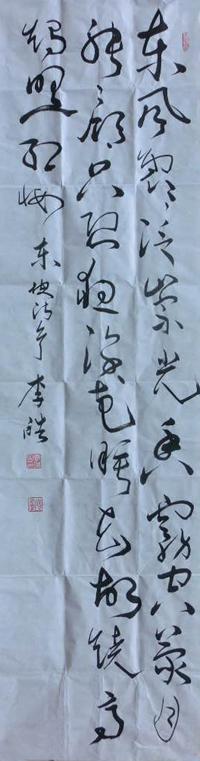 东风袅袅泛崇光香雾空蒙月
转廊只恐夜深花睡去故烧高
烛照红妆 东坡诗 李皓